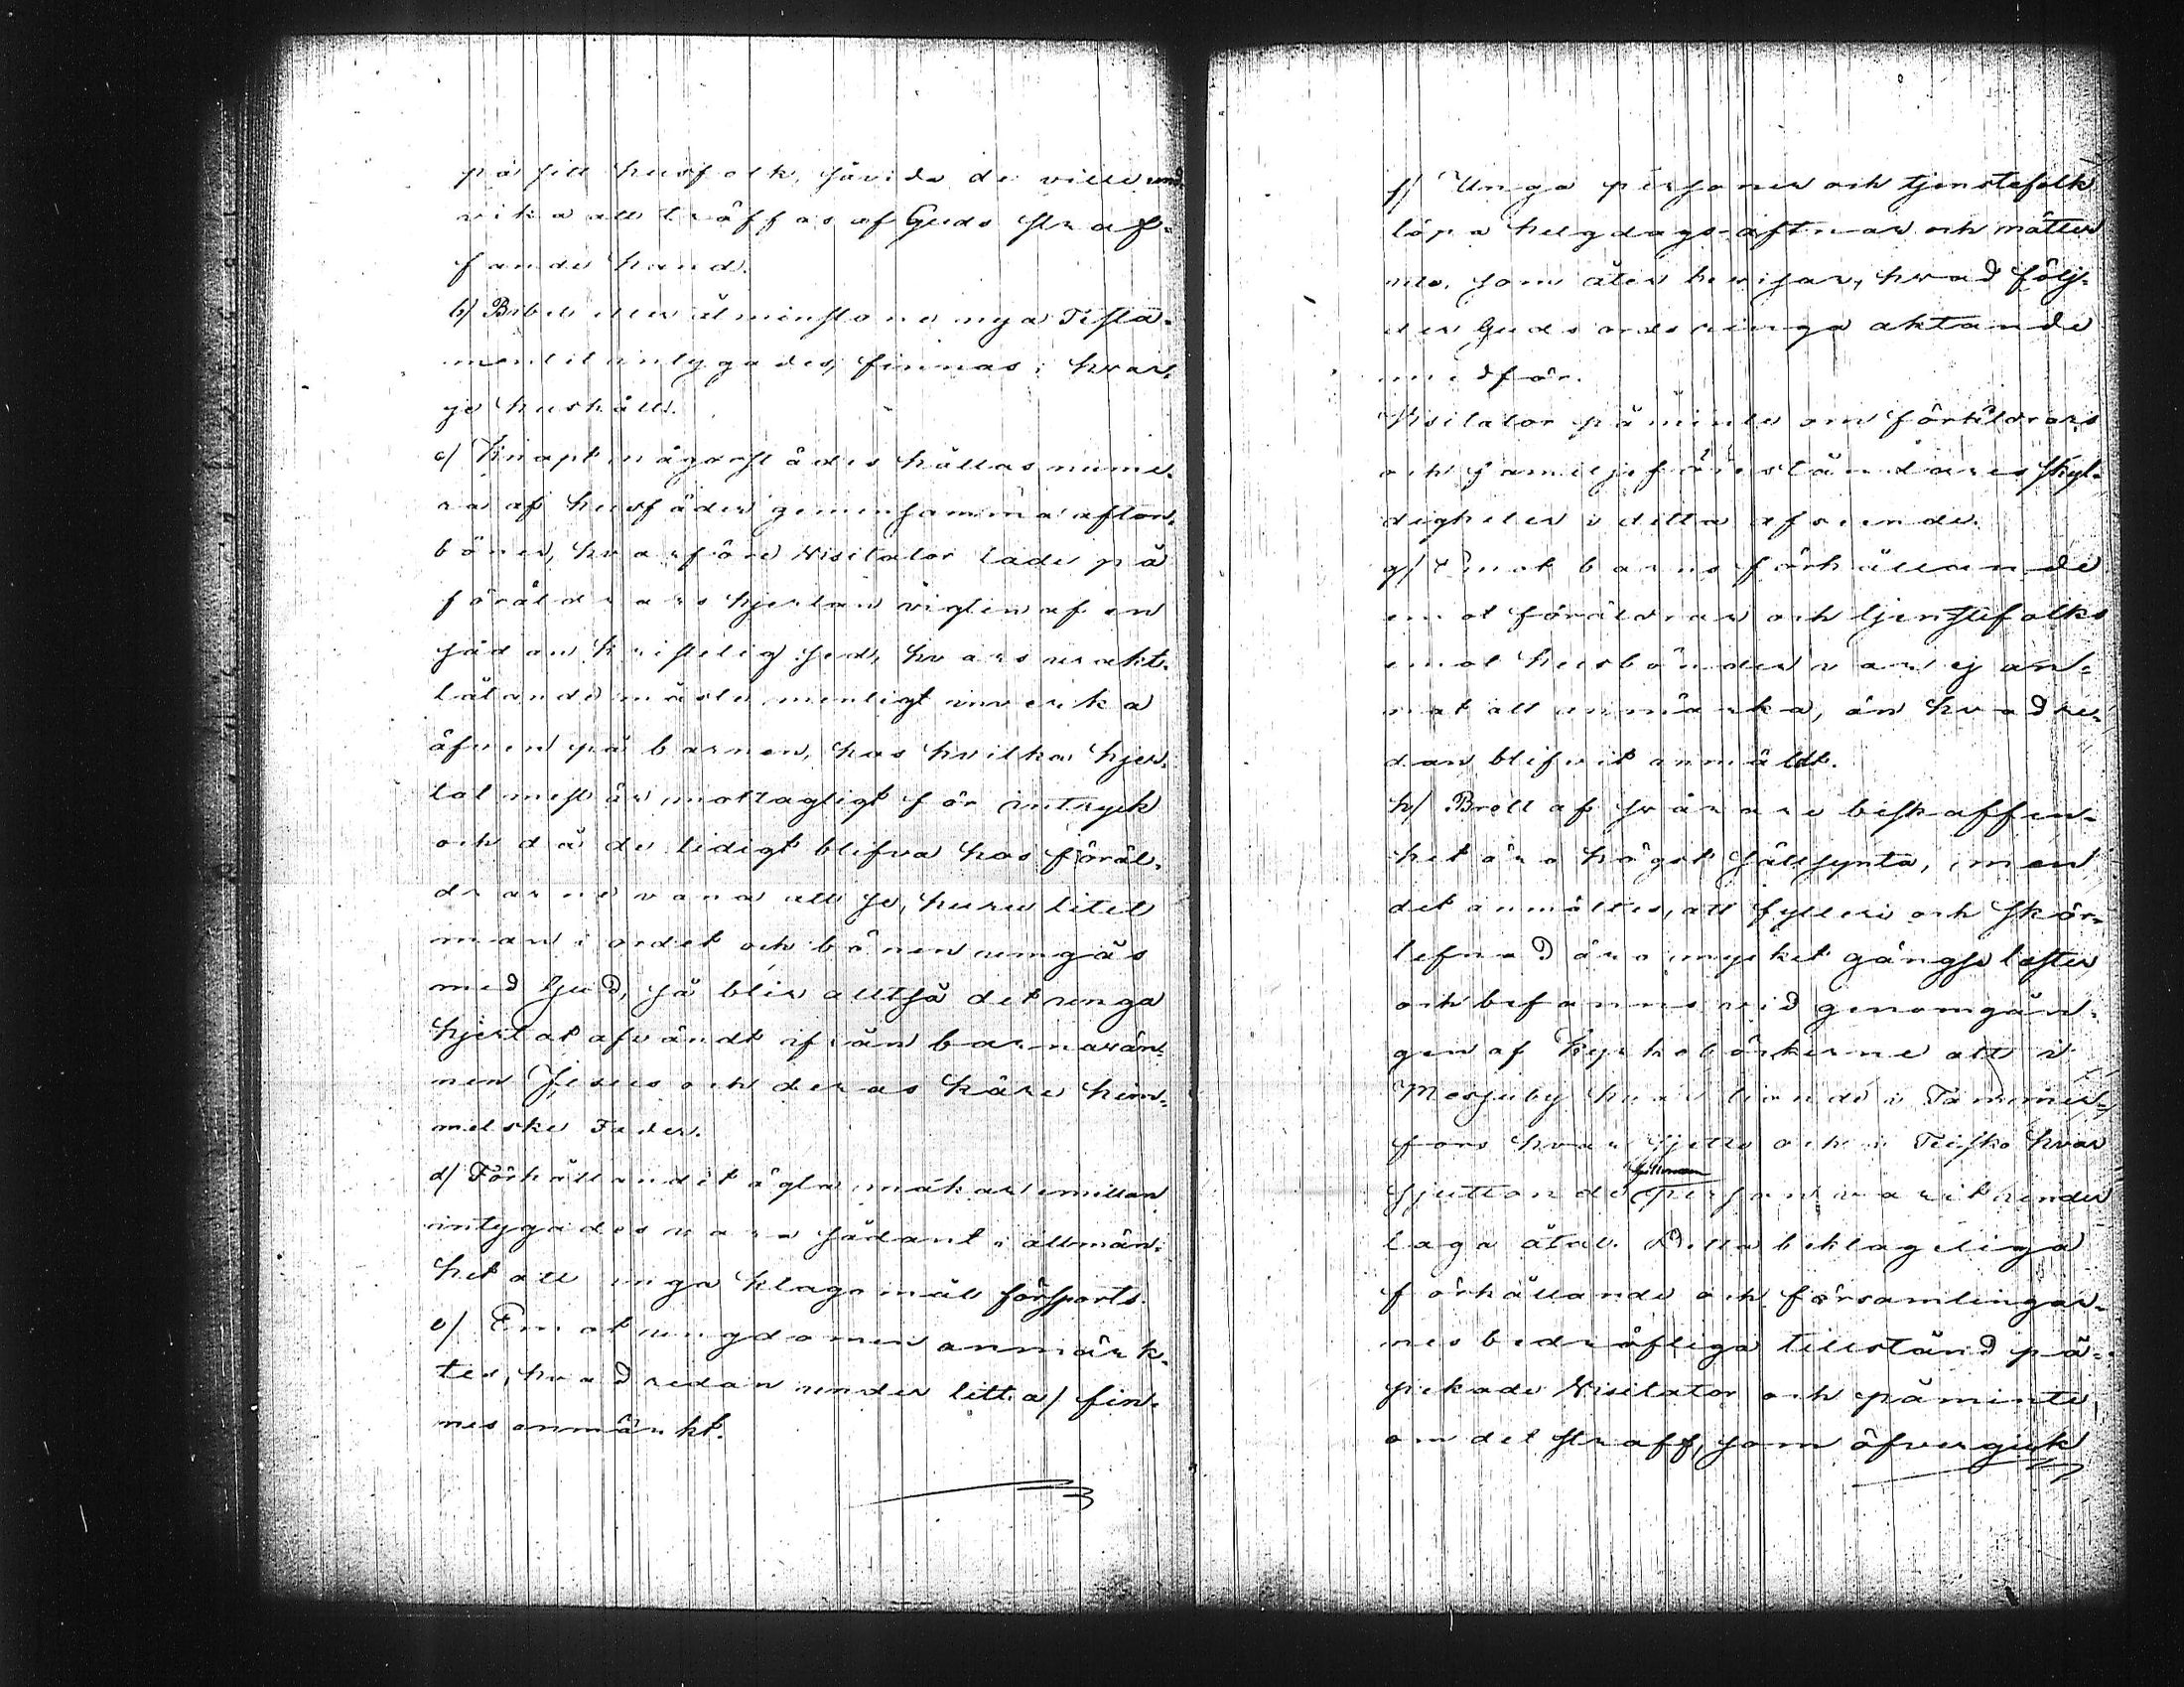 på sitt husfolk, såvida de ville und
vika att träffas af Guds straf-
fande hand.
b) Bibel eller åtminstone nya Testa-
mentet intygades, finnas i hvar-
je hushåll.
c) Knapt någorstädes hållas nume-
ra af husfäder gemensamma afton-
böner, hvarföre Visitator lade på
föräldrars hjertan vigten af en
sådan kristelig sed, hvars urakt-
låtande måste menligt inverka
äfven på barnen, hos hvilka hjer-
tat mest är mottagligt för intryck
och då de tidigt blifva hos föräl-
drarne vana att se, huru litet
man i ordet och bönen umgås
med Gud, så blir alltså det unga
hjertat afvändt ifrån barnavän-
nen Jesus och deras käre him-
melske Fader.
d) Förhållandet ägta makar emillan
intygades vara sådant i allmän-
het att inga klagomål försports.
e) Emot ungdomen anmärk-
tes, hvad redan under litt. a) fin-
nes anmärkt.
f) Unga personer och tjenstefolk
löpa helgdagsaftnar och nätter
som åter bevisar, hvad följ-
der Guds ords ringa aktande
medför.
Visitator påminte om föräldrars
och familjeföreståndares skyl-
digheter i detta afseende.
g) Emot barns förhållande
emot föräldrar och tjenstefolks
emot husbönder var ej an-
nat att anmärka, än hvad re-
dan blifvit anmäldt.
h) Brott af svårare beskaffen-
het äro högst sällsynta, men
det anmältes, att fylleri och skör-
lefnad äro mycket gängse laster
och befanns vid genomgån-
gen af Kyrkoböckerne att i
Mosjuby hvar tionde i Tammer-
fors hvar sjette och i Teisko hvar
sjuttonde person varit under
laga åtal. Detta beklageliga
förhållande och församlingar-
nes bedröfliga tillstånd på-
pekade Visitator och påminte
om det straff, som öfvergick